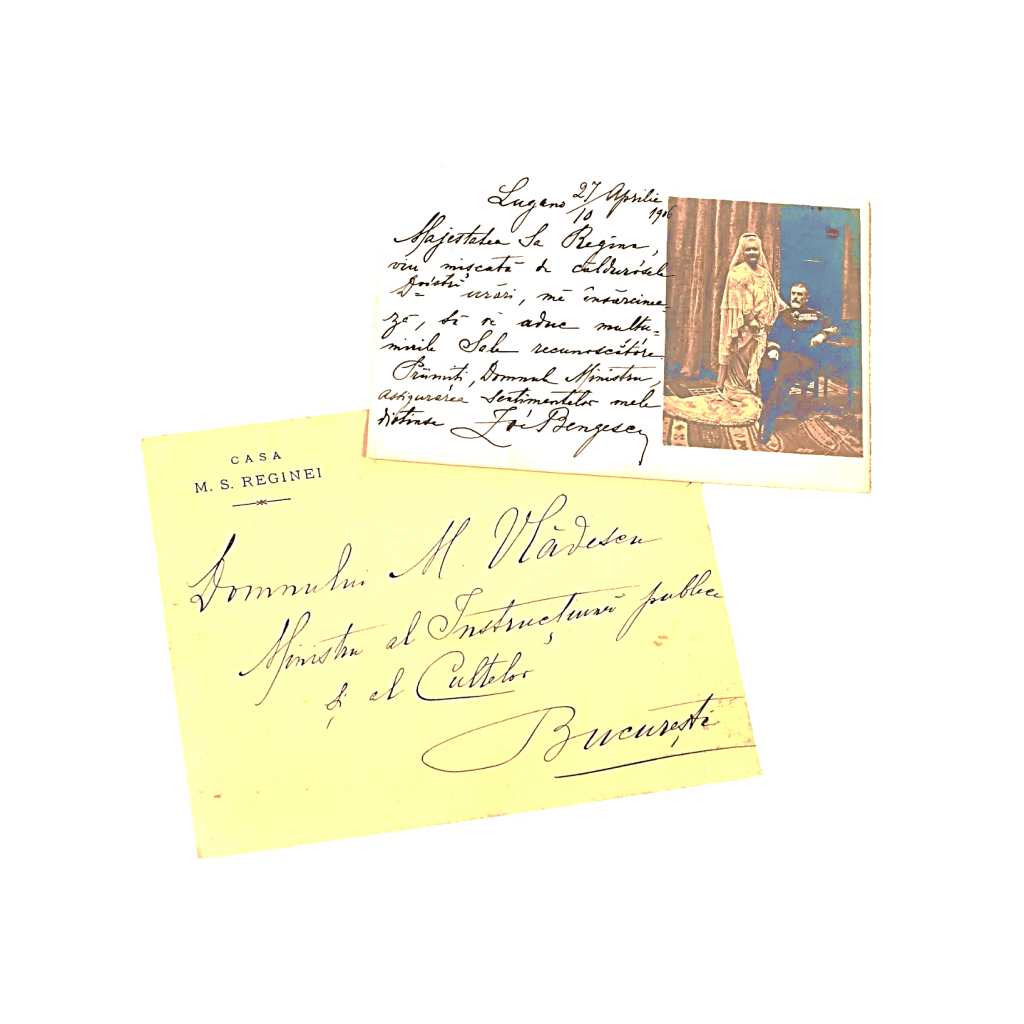 Lugano 27/10 Aprilie 1906
Majestatea Sa Regina,
viu mișcată de căldurósele
D-Vóstră urări, mé însărcinea-
ză, să vĕ aduc mulțu-
mirile Sale recunoscătóre.
Primiți, Domnul Ministru,
asigurarea sentimentelor mele
distinse Zoé Bengescu
CASA
M. S. REGINEI
Domnului M. Vlădescu
Ministru al Instrucțiunii publice
și al Cultelor
București